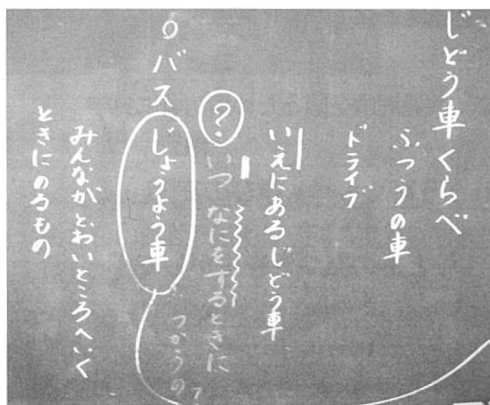 じどう車くらべ
ふつうの車
ドライブ
いえにあるじどう車
? いつ なにをするときに
つかうの?
○バス じょうよう車
みんながとおいところへいく
ときにのるもの